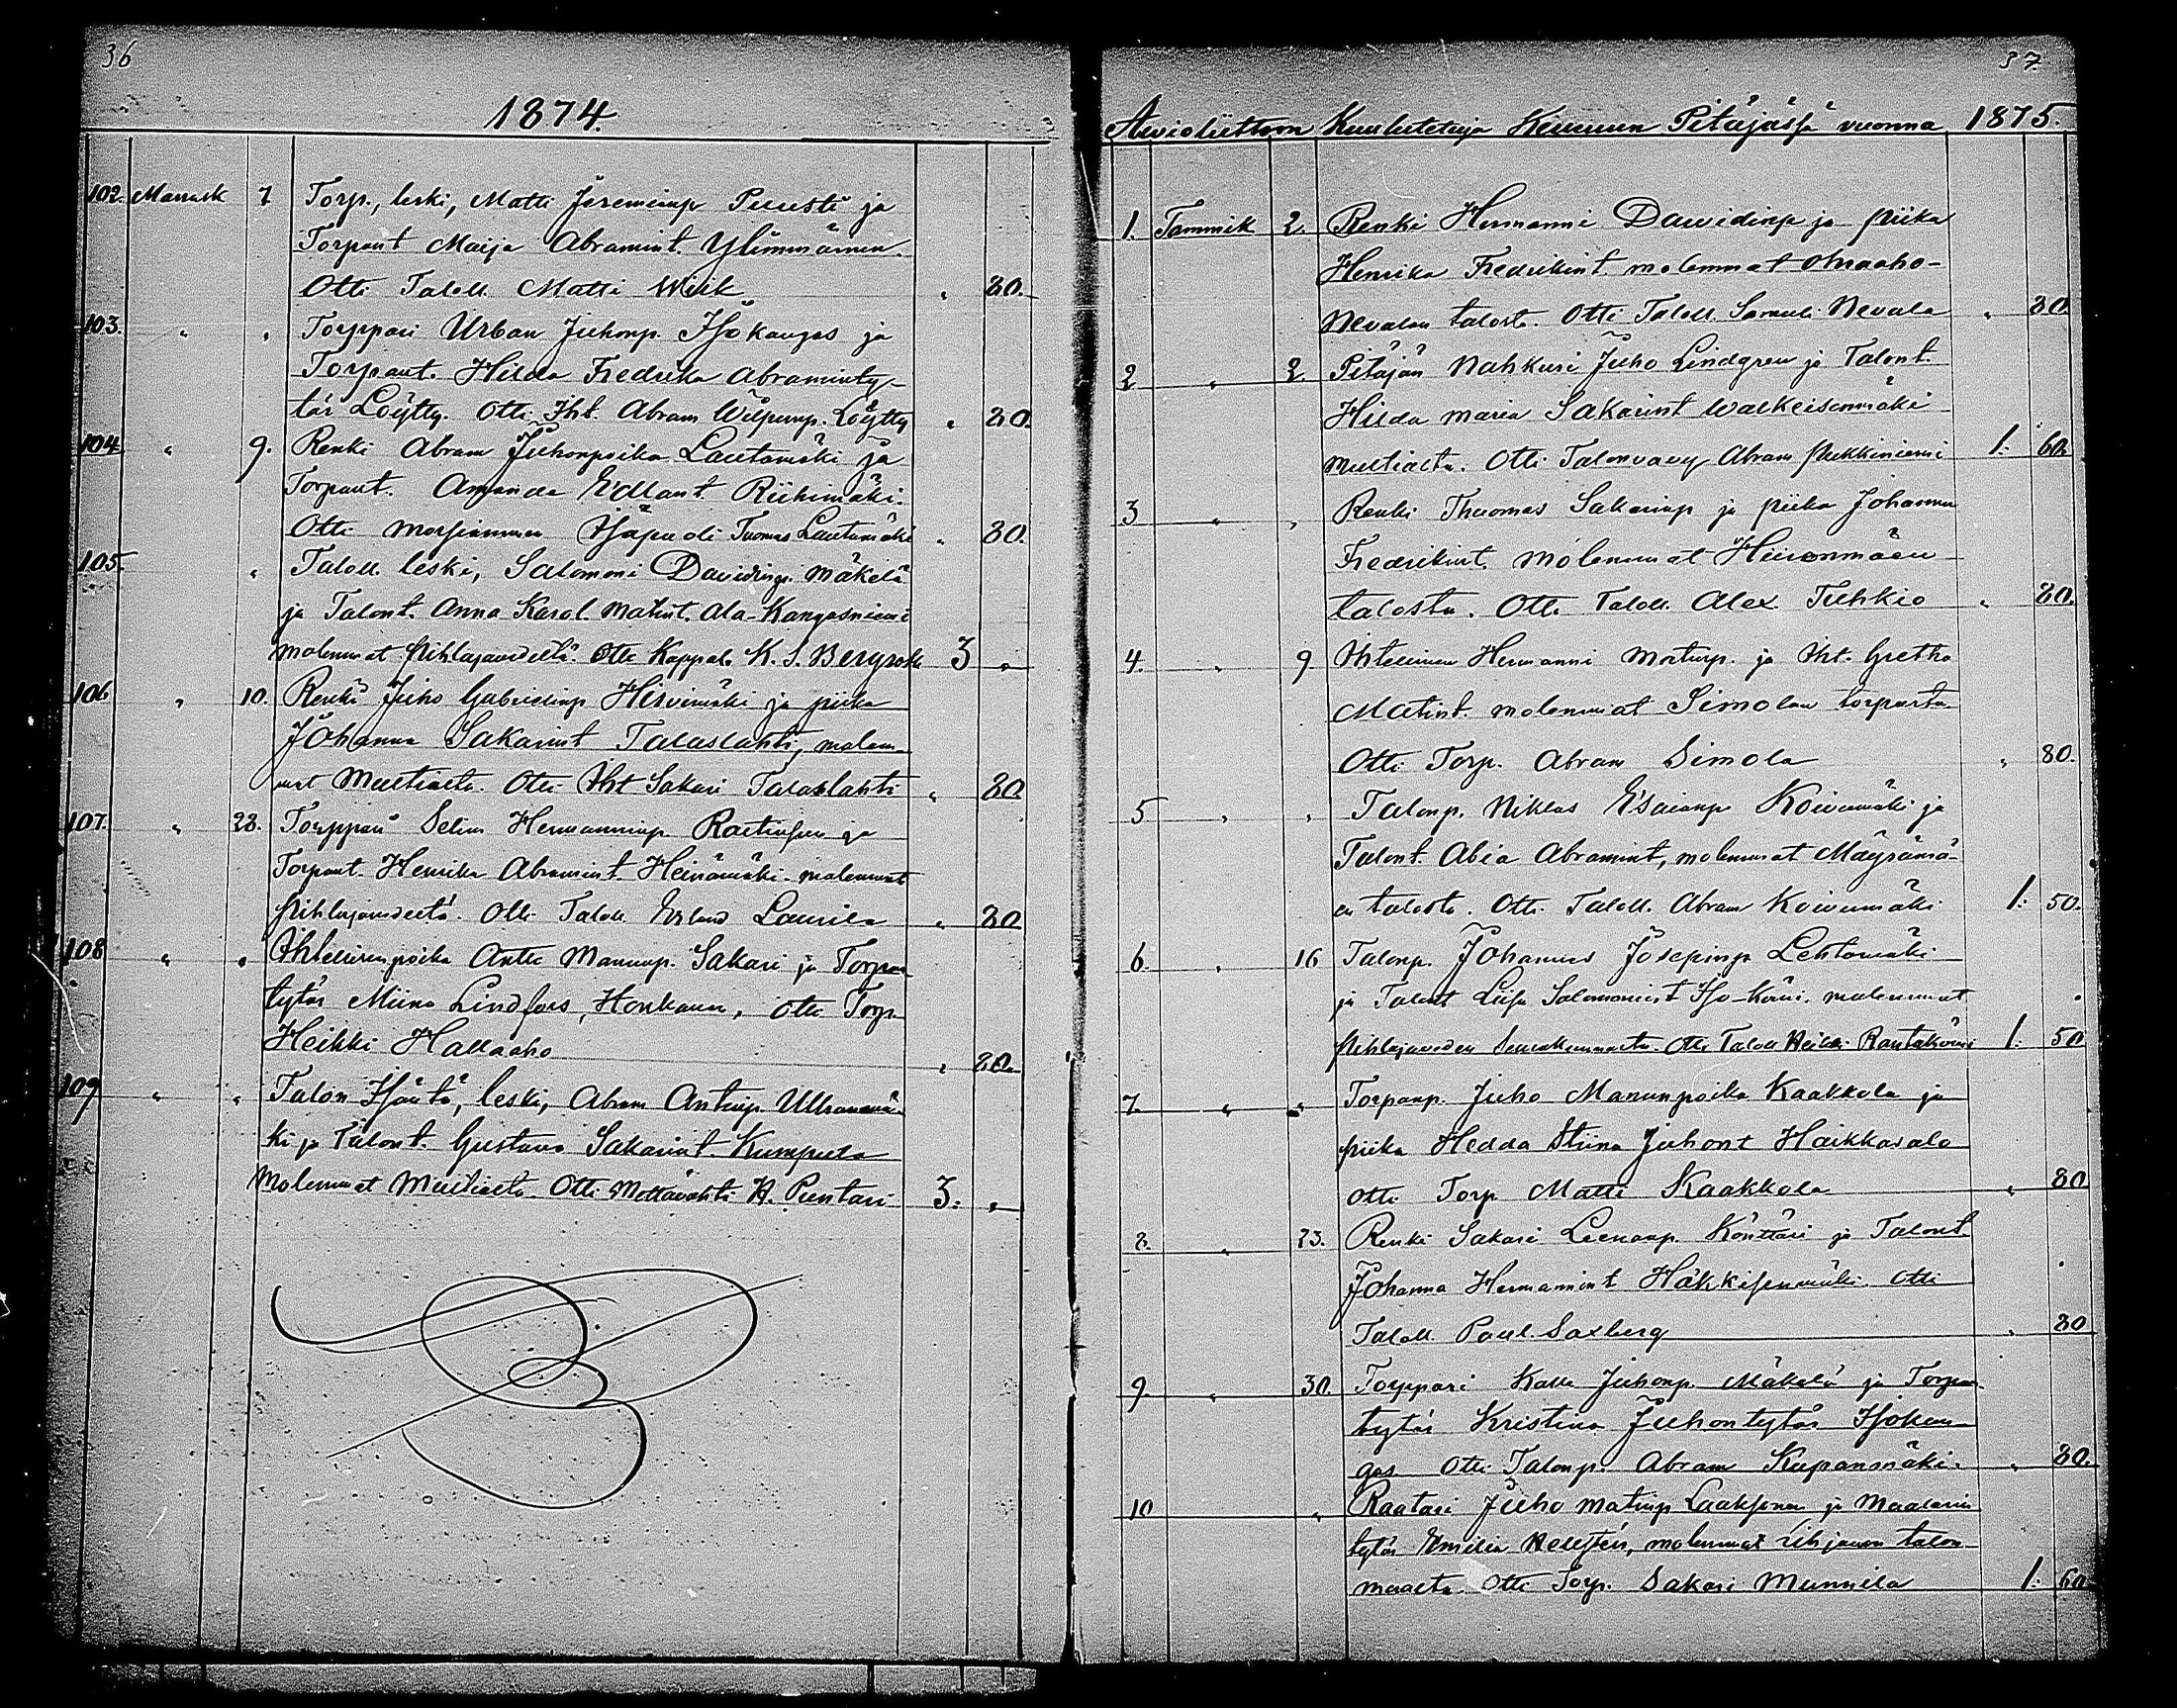 36
1874.
102. Marrask 7 Torp., leski, Matti Jeremianp Puusti ja
Torpant Maija Abramint. Ylimmäinen.
Otti Taloll. Matti Wiik " 80.
103. " " Torppari Urban Juhonp. Isokangas ja
Torpant. Hilda Fredrika Abraminty-
tär Löytty. Otti Iht. Abram Löytty " 80.
104 " 9. Renki Abram Juhonpoika Lautamäki ja
Torpant. Amanda Edlant. Riihimäki.
Otti morsiammen Isäpuoli Tuomas Lautamäki " 80.
105. " Taloll. leski, Salomoni Davidinp. Mäkelä
ja Talont. Anna Karol. Matint. Ala-Kangasniemi
molemmat Pihlajavedeltä. Otti Kappal. K. S. Bergroth 3 "
106 " 10. Renki Juho Gabrielinp Hirvimäki ja piika
Johanna Sakarint Talaslahti, molem-
mat Multialta. Otti Iht Sakari Talaslahti " 80
107. " 28. Torppari Selim Hermanninp Rautiainen ja
Torpant. Henrika Abramint. Heinämäki molemmat
Pihlajavedeltä. Otti Taloll Erland Laurila " 80
108 " " Ihtellisenpoika Antti Manunp. Sakari ja Torpan
tytär Miina Lindfors, Honkanen, Otti Torp.
Heikki Hallaaho " 80.
109 " " Talon Isäntä, leski, Abram Antinp
ki ja Talont. Gustava Sakarint. Kumpula
Molemmat Multialta. Otti Mettävahti H. Puntari 3. "
37
Awioliittoon Kuulutetuja Keuruun Pitäjässä vuonna 1875.
1. Tammik 2. Renki Hermanni Dawidinp ja piika
Henrika Fredrikint. molemmat Ohraaho-
Nevalan talosta. Otti Taloll. Samuli Nevala " 80.
2 " 2. Pitäjän Nahkuri Juho Lindgren ja Talont.
Hilda Maria Sakarint Walkeisenmäki
Multialta. Otti Talonvävy Abram Pukkiniemi 1. 60.
3 " " Renki Thuomas Sakarinp ja piika Johanna
Fredrikint. molemmat Heinonmäen
talosta. Otti Taloll. Alex. Tuhkio " 80.
4. " 9 Ihtellinen Hermanni Matinp. ja Iht. Gretha
Matint. molemmat Simolan torpasta
Otti Torp. Abram Simola " 80.
5 " " Talonp. Niklas Esaianp Koivumäki ja
Talont. Abia Abramint, molemmat Mäyrämä-
en talosta. Otti Taloll. Abram Koivumäki 1. 50.
6. " 16 Talonp. Johannes Josepinp Lehtomäki
ja Talont Liisa Salomonint Iso-Käni. molemmat
Pihlajaveden Seurakunnasta. Otti Taloll Heikki 1. 50
7. " " Torpanp. Juho Manunpoika Kaakkola ja
piika Hedda Stiina Juhont Haikkasalo
Otti Torp Matti Kaakkola " 80
8. " 23. Renki Sakari Leenanp. Könttäri ja Talont.
Johanna Hermannint Häkkisenmäki Otti
Taloll Paul. Saxberg " 80
9. " 30. Torppari Kalle Juhonp. Mäkelä ja Torpan
tytär Kristina Juhontytär Isokan-
gas Otti Talonp. Abram Kupanmäki. " 80.
10 " Raatari Juho Matinp Laaksonen ja Maalarin
tytär Emilia Hellstén, molemmat talon
maalta. Otti Torp. Sakari Munnila 1. 60